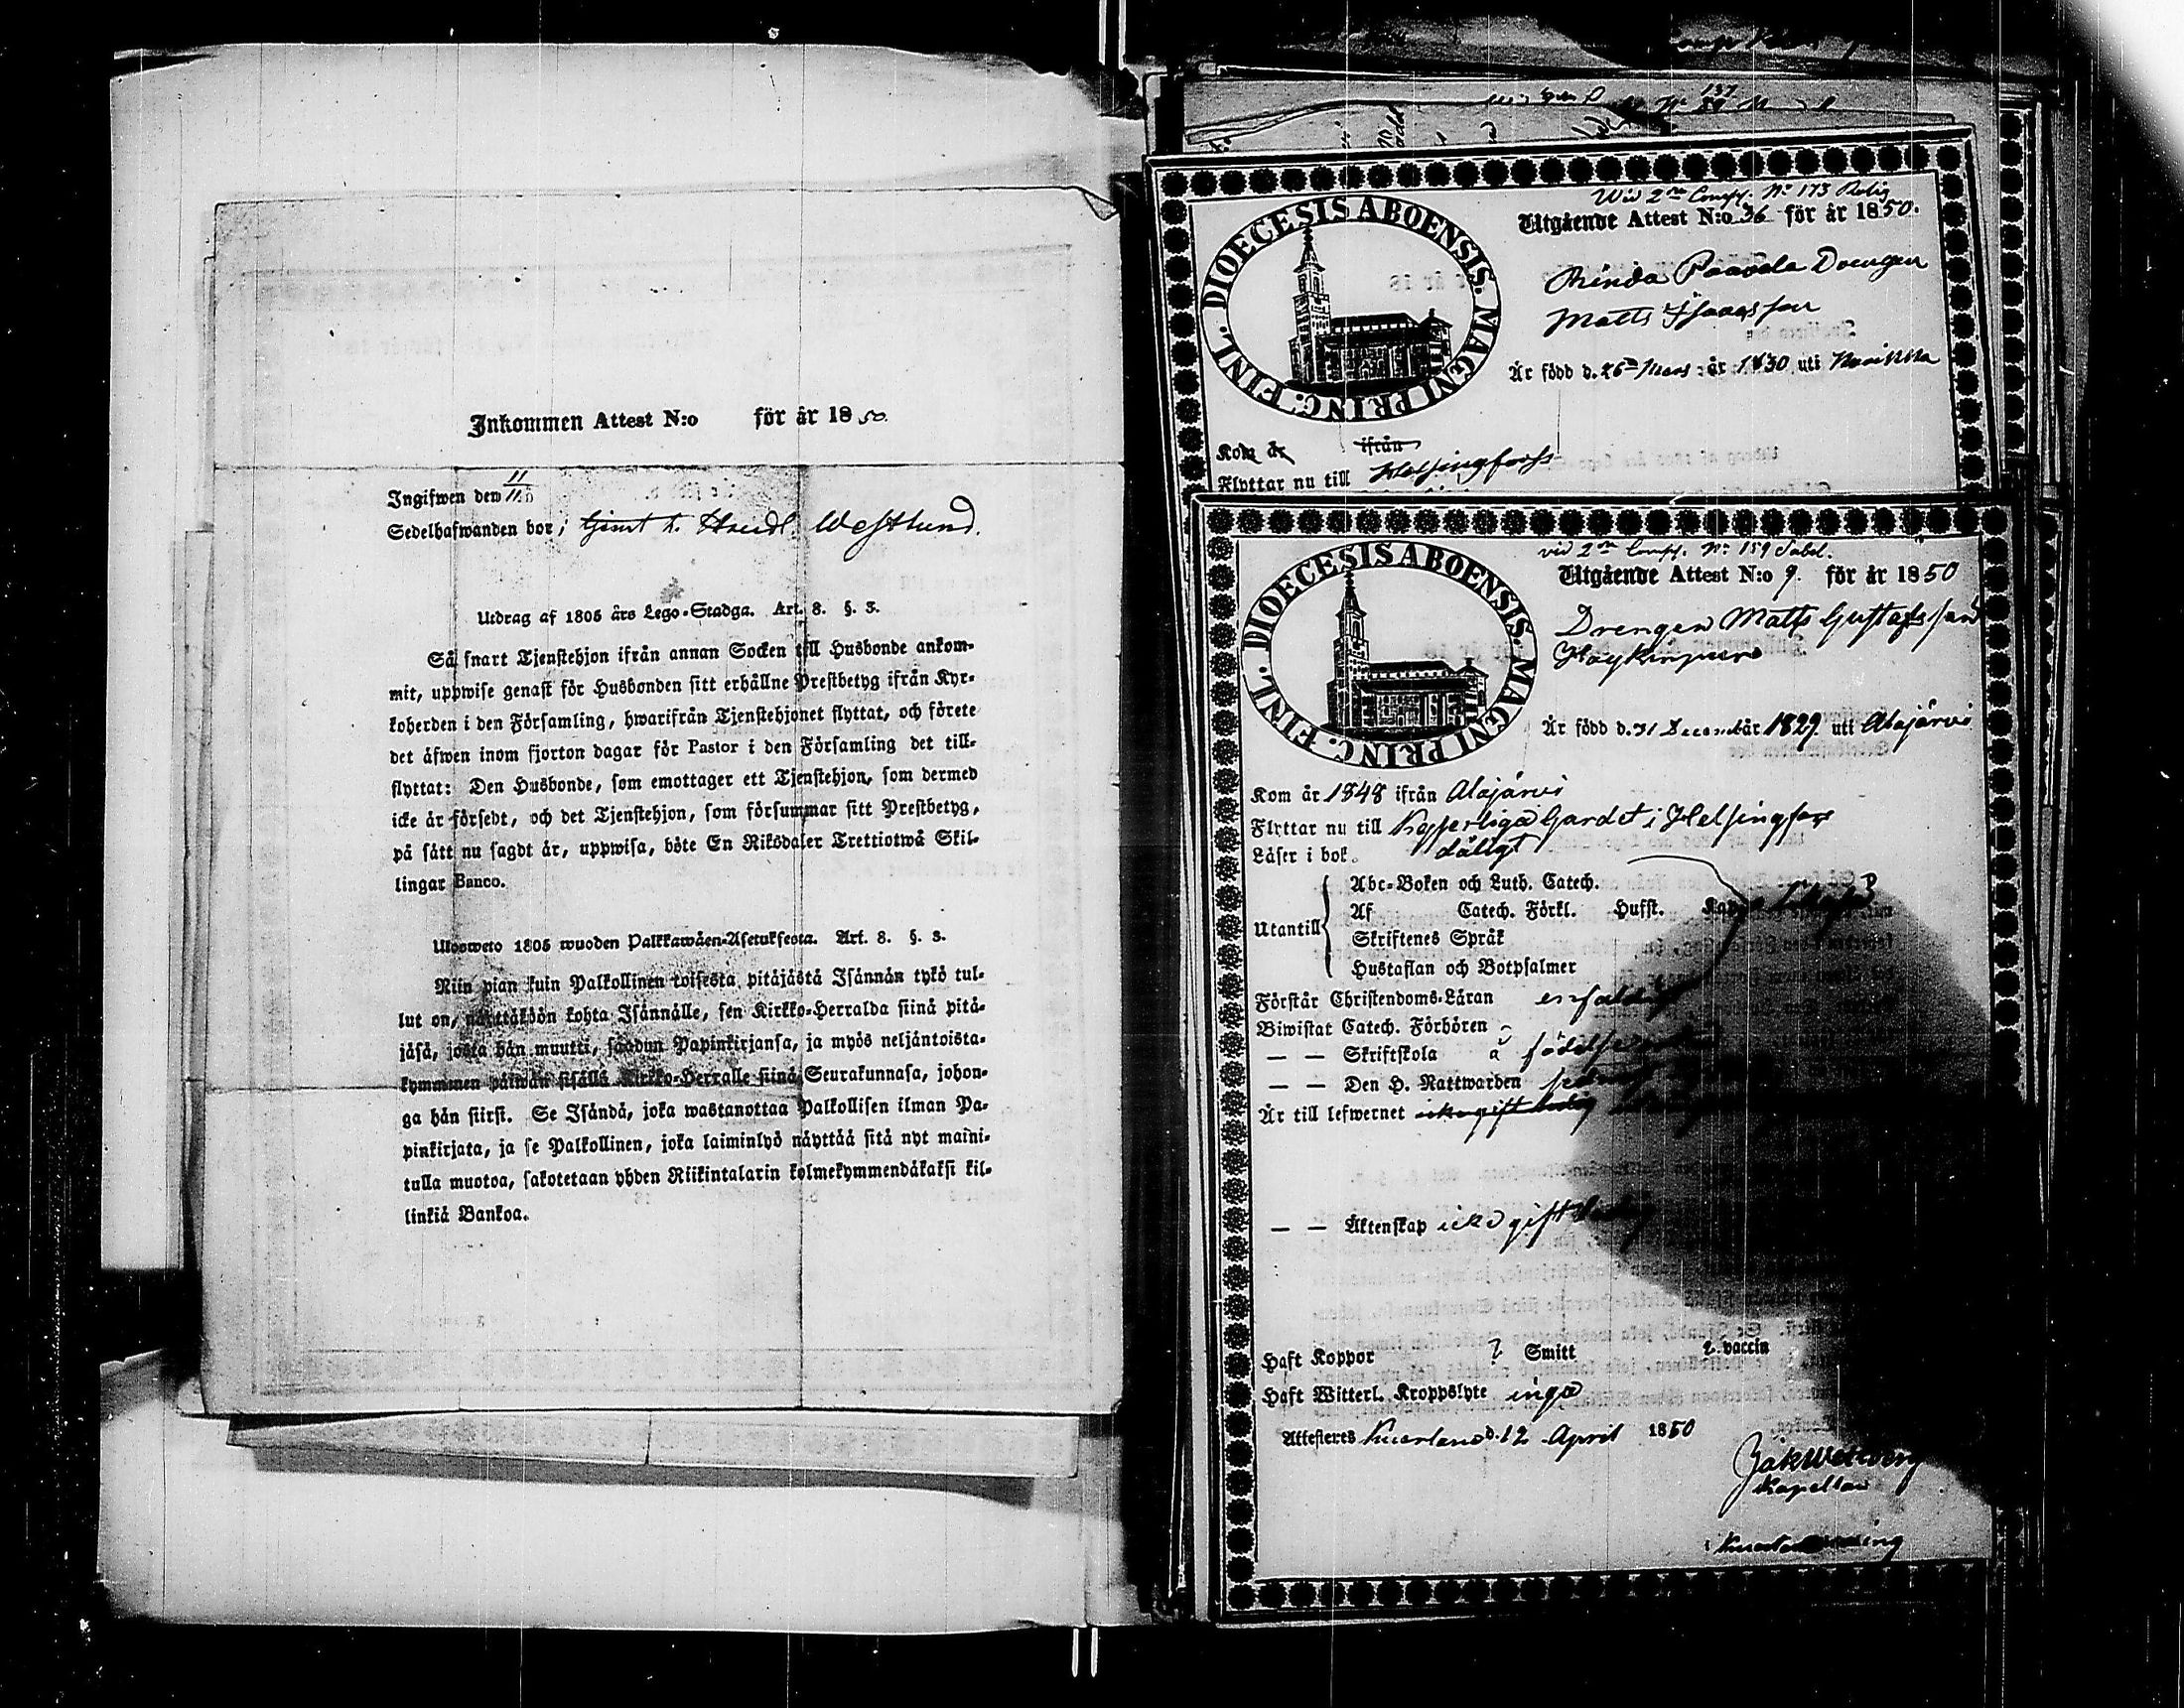 Inkommen Attest N:o för år 1850.
Ingifwen den 11/11
Sedelhafwanden bor i tjenst h. Handl. Westlund.
Utdrag af 1805 års Lego-Stadga. Art. 8. §. 3.
Så snart Tjenstehjon ifrån annan Socken till Husbonde ankom-
mit, uppwise genast för Husbonden sitt erhållne Prestbetyg ifrån Kyr-
koherden i den Församling, hwarifrån Tjenstehjonet flyttat, och förete
det äfwen inom fjorton dagar för Pastor i den Församling det till-
flyttat: Den Husbonde, som emottager ett Tjenstehjon, som dermed
icke är försedt, och det Tjenstehjon, som försummar sitt Prestbetyg,
på sätt nu sagdt är, uppwisa, böte En Riksdaler Trettiotwå Skil-
lingar Banco.
Ulosweto 1805 wuoden Palkkawäen-Asetuksesta. Art. 8. §. 3.
Niin pian kuin Palkollinen toisesta pitäjästä Isännän tykö tul-
lut on, näyttäköön kohta Isännälle, sen Kirkko-Herralda siinä pitä-
jäsä, josta hän muutti, saadun Papinkirjansa, ja myös neljäntoista-
kymmmen päiwän sisällä Kirkko-Herralle siinä Seurakunnasa, johon-
ga hän siirsi. Se Isändä, joka wastanottaa Palkollisen ilman Pa-
pinkirjata, ja se Palkollinen, joka laiminlyö näyttää sitä nyt maini-
tulla muotoa, sakotetaan yhden Riikintalarin kolmekymmendäkaksi kil-
linkiä Bankoa.
Wid 2ra Comp. No 173 Rolig
Utgående Attest N:o 36 för år 1850.
DIOECESIS ABOENSIS. MAGNI PRINC. FINL.
Paavola Drengen
Matts Isaacsson
Är född d. 26 Mars år 1830 uti
Kom år ifrån
Flyttar nu till Helsingfors
vid 2ra Comp. No 159 Sabel.
Utgående Attest N:o 9. för år 1850
DIOECESIS ABOENSIS. MAGNI PRINC. FINL.
Drengen Matts Gustafsson
Är född d. 31 Decemb år 1829 uti Alajärvi
Kom år 1848 ifrån Alajärvi
Flyttar nu till Kejserliga Gardet i Helsingfors
Läser i bok dåligt
Utantill
Abc-Boken och Luth. Catech.
Af Catech. Förkl. Hufst.
Skriftenes Språk
Hustaflan och Botpsalmer
Förstår Christendoms-Läran enfaldigt
Biwistat Catech. Förhören
— — Skriftskola å
— — Den H. Nattwarden
Är till lefwernet
— — Äktenskap icke gift
Haft Koppor ? Smitt ? vaccin
Haft Witterl. Kroppslyte inga
Attesteres d. 12 April 1850
Kapellan